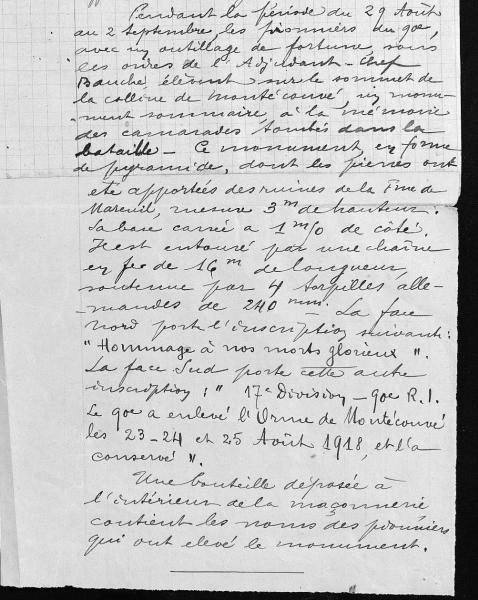 Pendant la période du 29 Août
au 2 Septembre, les pionniers du 90e,
avec un outillage de fortune, sous
les ordres de l'Adjudant-Chef
Bauché, élèvent sur le sommet de
la colline de Montécouvé, un monu-
ment sommaire, à la mémoire
des camarades tombés dans la
bataille – Ce monument, en forme
de pyramide, dont les pierres ont
été apportées des ruines de la Fme de
Mareuil, mesure 3m de hauteur.
Sa base carrée a 1m50 de côté.
Il est entouré par une chaîne
en fer de 16m de longueur,
soutenue par 4 torpilles alle-
mandes de 240 mm. – La face
Nord porte l'inscription suivante:
"Hommage à nos morts glorieux".
La face Sud porte cette autre
inscription: " 17e Division – 90e R.I.
Le 90e a enlevé l'Orme de Montécouvé
les 23-24 et 25 Août 1918, et l'a
conservé ".
Une bouteille déposée à
l'intérieur de la maçonnerie
contient les noms des pionniers
qui ont elevé le monument.